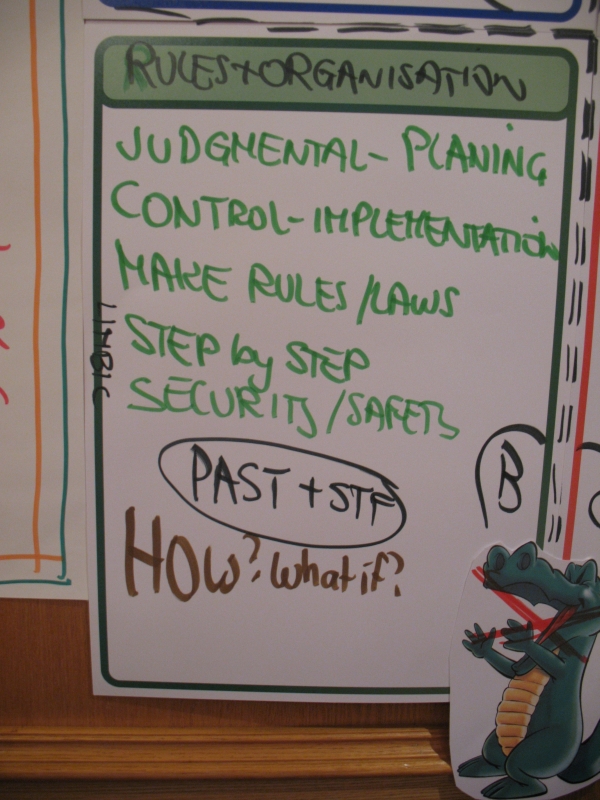 RULES+ORGANISATION
JUDGMENTAL- PLANING
CONTROL-IMPLEMENTATION
MAKE RULES/LAWS
STEP by STEP
SECURITY/SAFETY
LIMBIC
PAST + STF
B
HOW? What if?